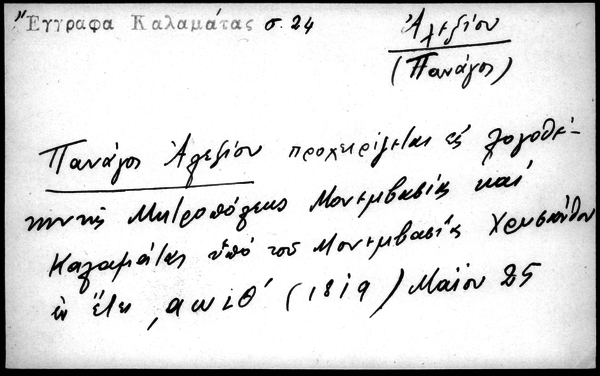 "Έγγραφα Καλαμάτας σ. 24
Ἀλεξίου
(Πανάγος)
Πανάγος Ἀλεξίου προχειρίζεται εἰς λογοθέ-
την τῆς Μητροπόλεως Μονεμβασίας καί
Καλαμάτας ὑπό τοῦ Μονεμβασίας Χρυσάνθου
ἐν ἔτει ͵αωιθ' (1819) Μαΐου 25